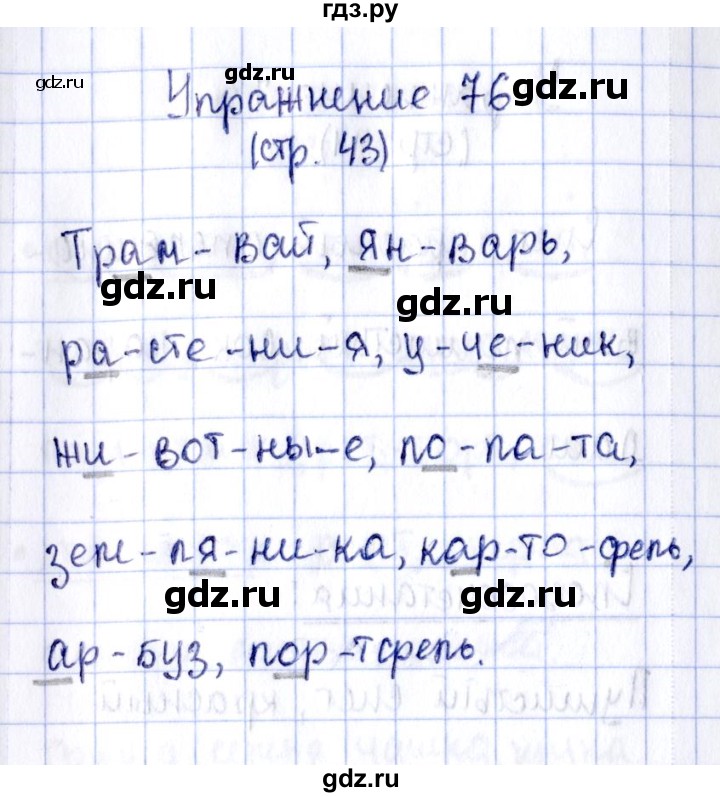 гдз.ру
gdz.ru gdz.ru
Упражнение 76 gdz.ru
(стр. 43)
Трам- вай, ян-варь,
gdz.ru gdz.ru
ра-сте-ни-я, у-че-ник,
жи-вот-ны-е, ло-па-та,
зем-ля-ни-ка, кар-то-фель,
gdz.ru gdz.ru
ар-буз, пор-тфель.
gdz.ru